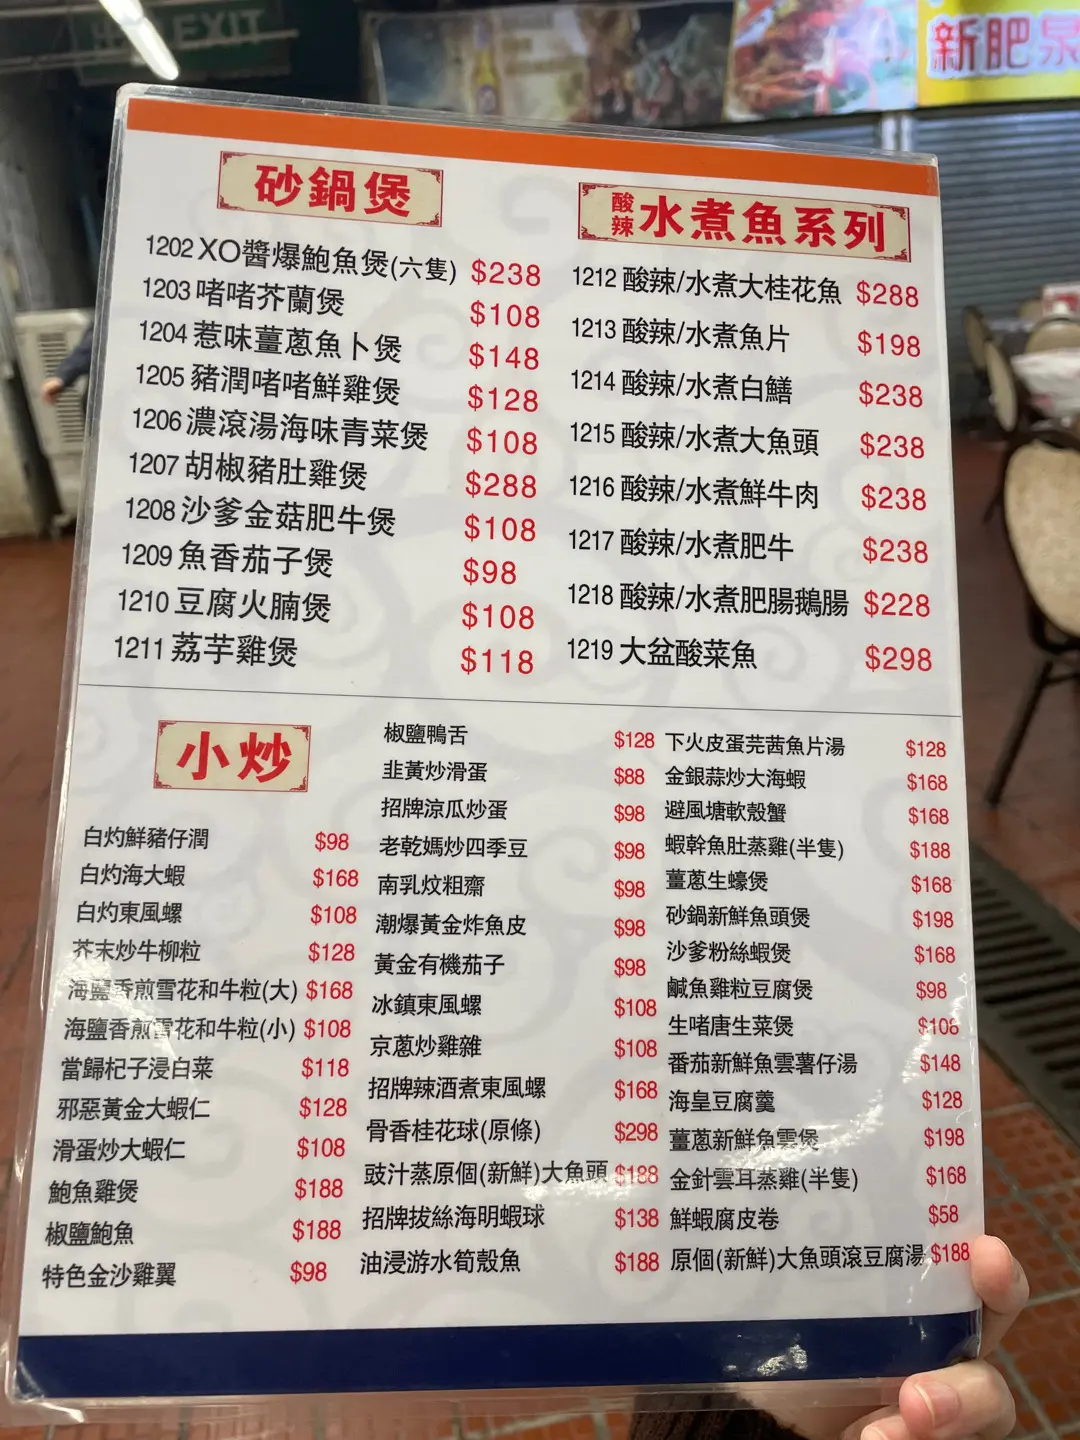 EXIT
新肥泉
砂鍋煲
1202 XO醬爆鮑魚煲(六隻) $238
1203 啫啫芥蘭煲 $108
1204 惹味薑蔥魚卜煲 $148
1205 豬潤啫啫鮮雞煲 $128
1206 濃滾湯海味青菜煲 $108
1207 胡椒豬肚雞煲 $288
1208 沙爹金菇肥牛煲 $108
1209 魚香茄子煲 $98
1210 豆腐火腩煲 $108
1211 荔芋雞煲 $118
酸辣水煮魚系列
1212 酸辣/水煮大桂花魚 $288
1213 酸辣/水煮魚片 $198
1214 酸辣/水煮白鱔 $238
1215 酸辣/水煮大魚頭 $238
1216 酸辣/水煮鮮牛肉 $238
1217 酸辣/水煮肥牛 $238
1218 酸辣/水煮肥腸鵝腸 $228
1219 大盆酸菜魚 $298
小炒
白灼鮮豬仔潤 $98
白灼海大蝦 $168
白灼東風螺 $108
芥末炒牛柳粒 $128
海鹽香煎雪花和牛粒(大) $168
海鹽香煎雪花和牛粒(小) $108
當歸杞子浸白菜 $118
邪惡黃金大蝦仁 $128
滑蛋炒大蝦仁 $108
鮑魚雞煲 $188
椒鹽鮑魚 $188
特色金沙雞翼 $98
椒鹽鴨舌 $128
韭黃炒滑蛋 $88
招牌涼瓜炒蛋 $98
老乾媽炒四季豆 $98
南乳炆粗齋 $98
潮爆黃金炸魚皮 $98
黃金有機茄子 $98
冰鎮東風螺 $108
京蔥炒雞雜 $108
招牌辣酒煮東風螺 $168
骨香桂花球(原條) $298
豉汁蒸原個(新鮮)大魚頭 $188
招牌拔絲海明蝦球 $138
油浸游水筍殼魚 $188
下火皮蛋芫茜魚片湯 $128
金銀蒜炒大海蝦 $168
避風塘軟殼蟹 $168
蝦幹魚肚蒸雞(半隻) $188
薑蔥生蠔煲 $168
砂鍋新鮮魚頭煲 $198
沙爹粉絲蝦煲 $168
鹹魚雞粒豆腐煲 $98
生啫唐生菜煲 $108
番茄新鮮魚雲薯仔湯 $148
海皇豆腐羹 $128
薑蔥新鮮魚雲煲 $198
金針雲耳蒸雞(半隻) $168
鮮蝦腐皮卷 $58
原個(新鮮)大魚頭滾豆腐湯 $188